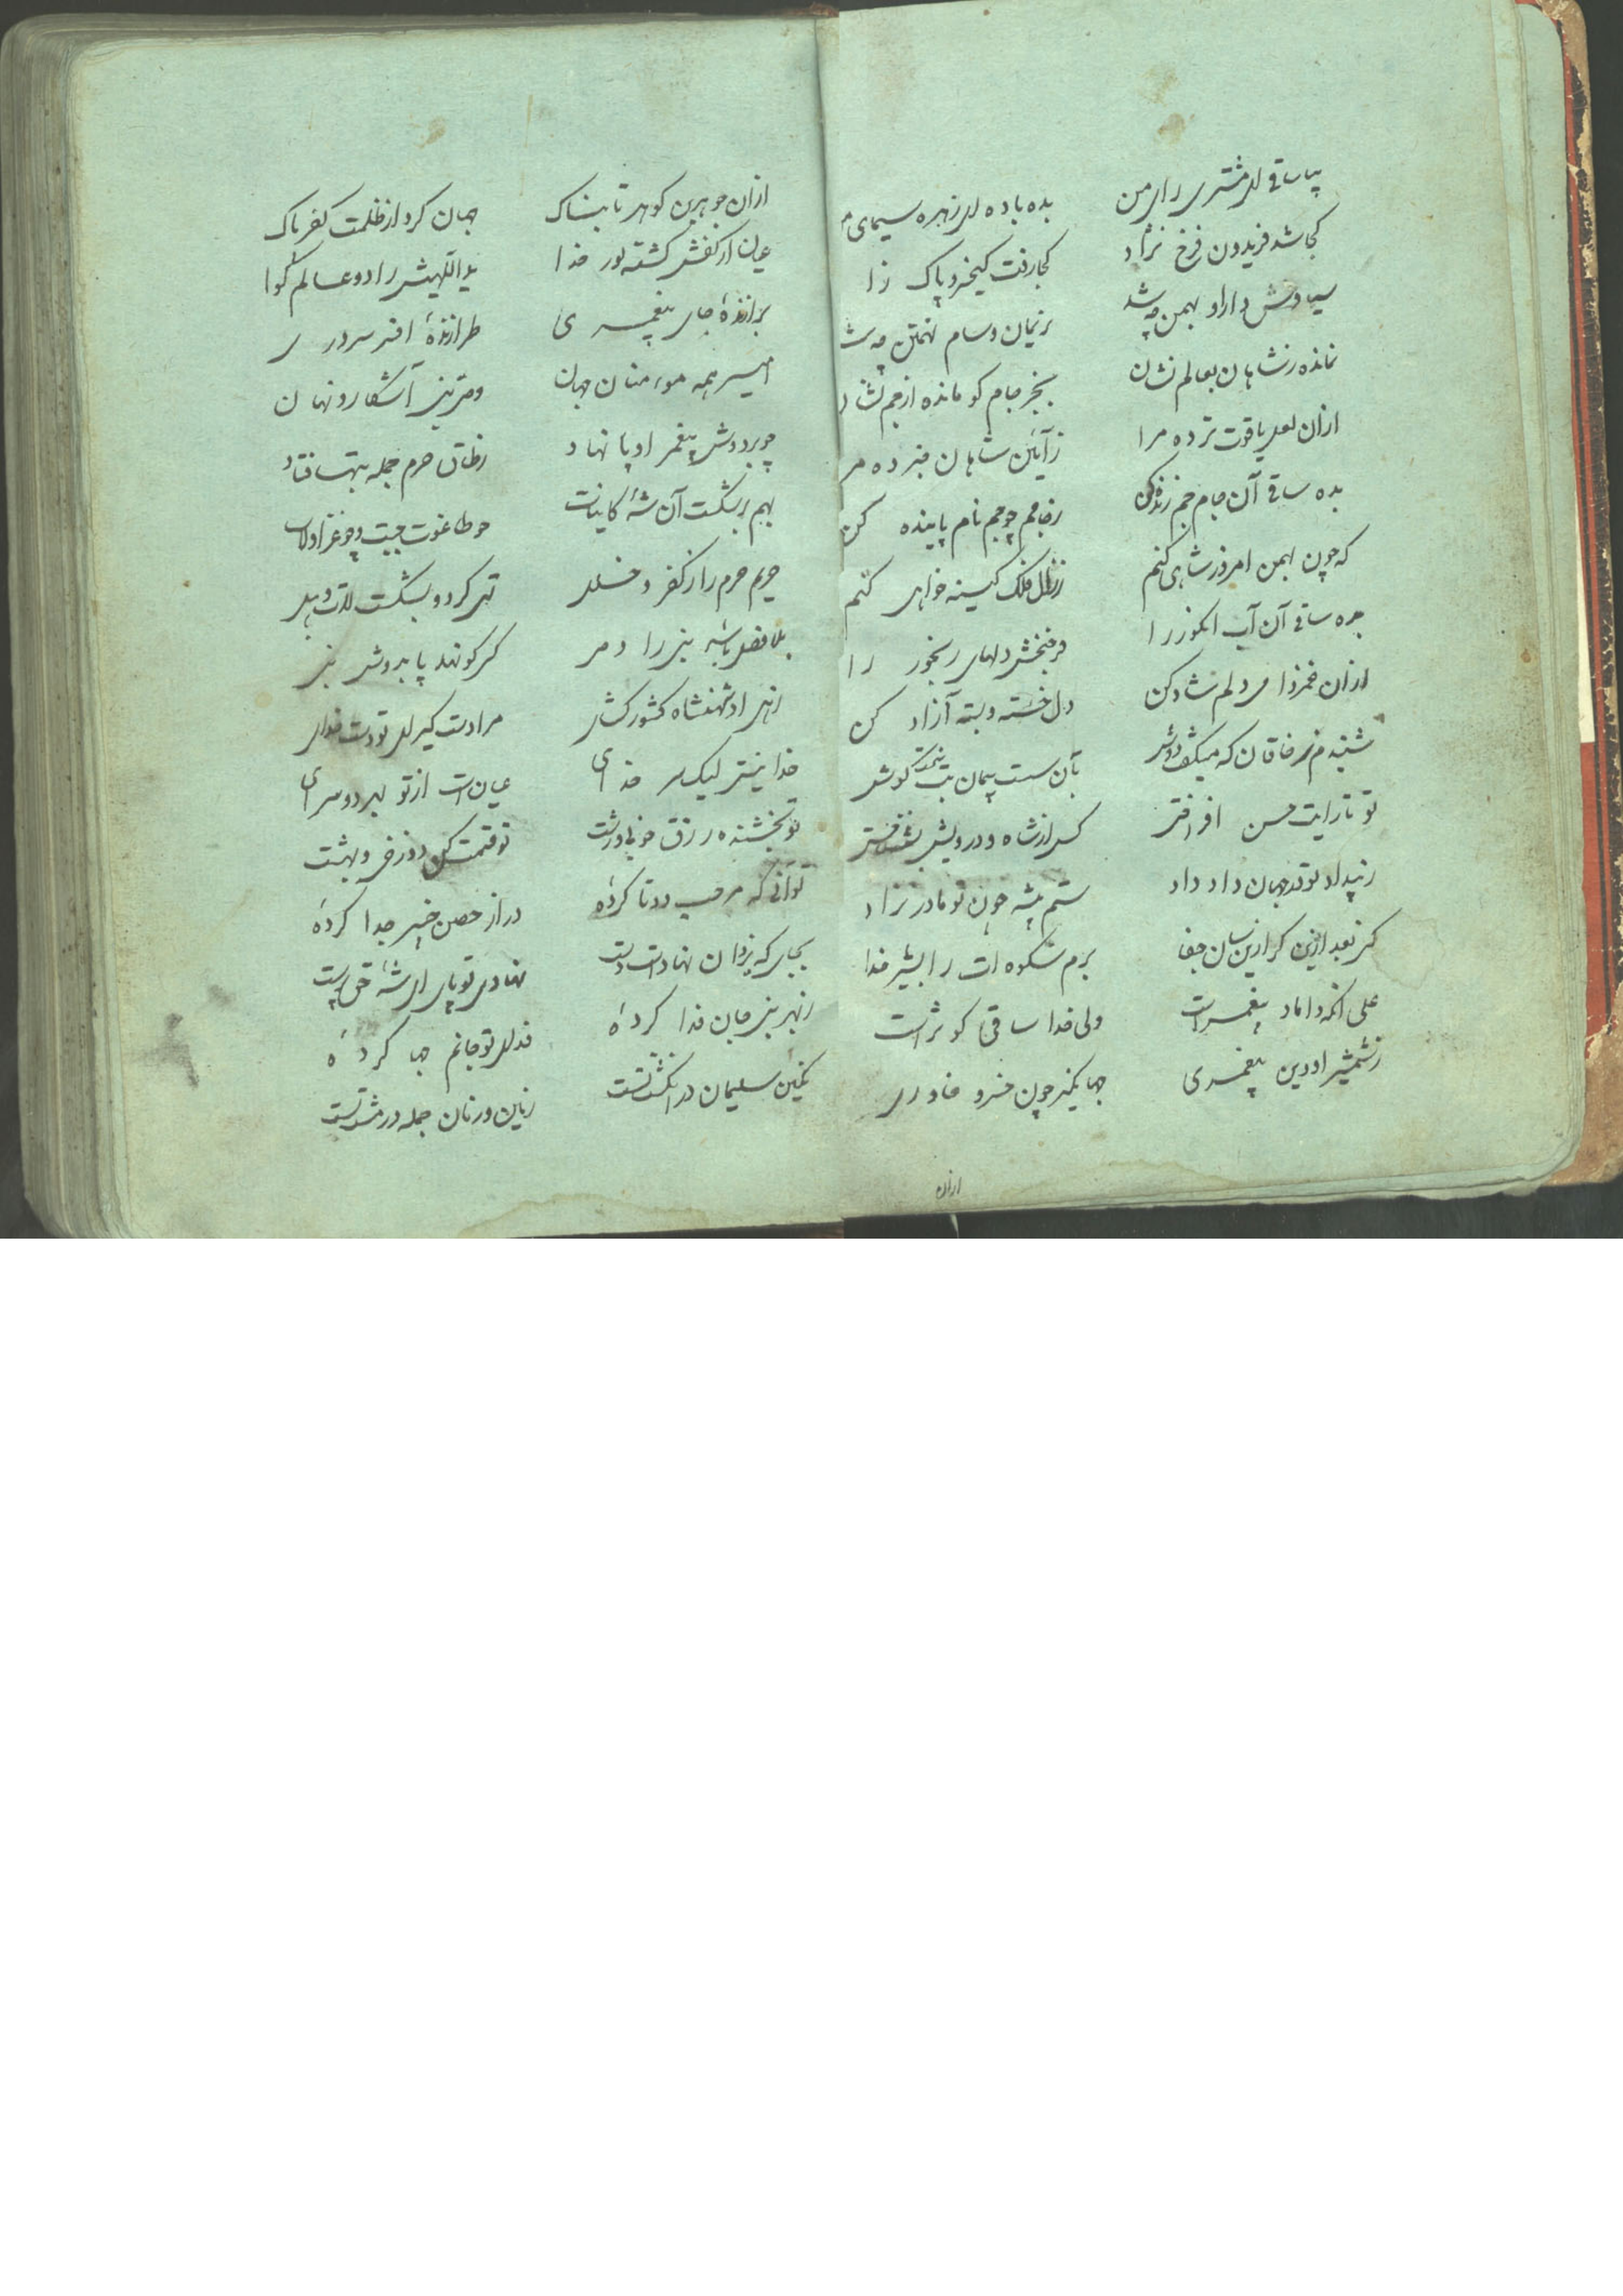 بیا ساقی ای مشتری رای من بده باده ای زهره سیمای
کجا شد فریدون فرخ نژاد کجا رفت کیخسرو پاک زا
سیاوش و دارا و بهمن چه شد نریمان و سام تهمتن چه ش
نمانده ز شاهان بعالم نشان بجز جام کو مانده از جم نشا
ازان لعل یاقوت تر ده مرا ز آیین شاهان خبر ده مر
بده ساقی آن جام جم زنده کن ز جامم چو جم نام پاینده کن
که چون بهمن امروز شاهی کنم ز زال فلک کینه خواهی کنم
بده ساقی آن آب انگور را فرحبخش دلهای رنجور را
ازان غمزدا می دلم شاد کن دل خسته و بسته آزاد کن
شنیدم ز خاقان که میگفت دوش بآن سست پیمان بت
تو تا رایت حسن افراختی کس از شاه و درویش نشناختی
ز بیداد تو در جهان داد داد ستم پیشه چون تو مادر نزاد
کنی بعد ازین گر ازینسان جفا برم شکوه ات را بشیر خدا
علی آنکه داماد پیغمبر است ولی خدا ساقی کوثر است
ز شمشیر او دین پیغمبری جهانگیر چون خسرو خاوری
ازان
ازان جوهرین گوهر تابناک جهان کرد از ظلمت کفر پاک
عیان از کفش گشته نور خدا ید اللهیش را دو عالم گوا
برازندهٔ جای پیغمبری طرازندهٔ افسر سروری
امیر همه موءمنان جهان وصی نبی آشکار و نهان
چو بر دوش پیغمبر او پا نهاد ز طاق حرم جمله بتها فتاد
بهم برشکست آن شه کاینات چو طاغوت و جبت و چو عزا و لات
حریم حرم را ز کفر و خلل تهی کرد و بشکست لات و هبل
بلا فصل باشد نبی را وصی کسی کو نهد پا بدوش نبی
زهی او شهنشاه کشور گشای مرا دست گیر ای تو دست خدای
خدا نیستی لیک خدای عیان است از تو بهر دو سرای
تو بخشندهٔ رزق خوب و زشت تو قسمت کن دوزخی و بهشت
توآنی که مرحب دو تا کردهٔ در از حصن خیبر جدا کردهٔ
بجایی که یزدان نهاده است دست نهادی تو پای ای شه حق پرست
ز بهر نبی جان فدا کردهٔ فدای تو جانم چها کردهٔ
نگین سلیمان در انگشت تست زمین و زمان جمله در مشت تست